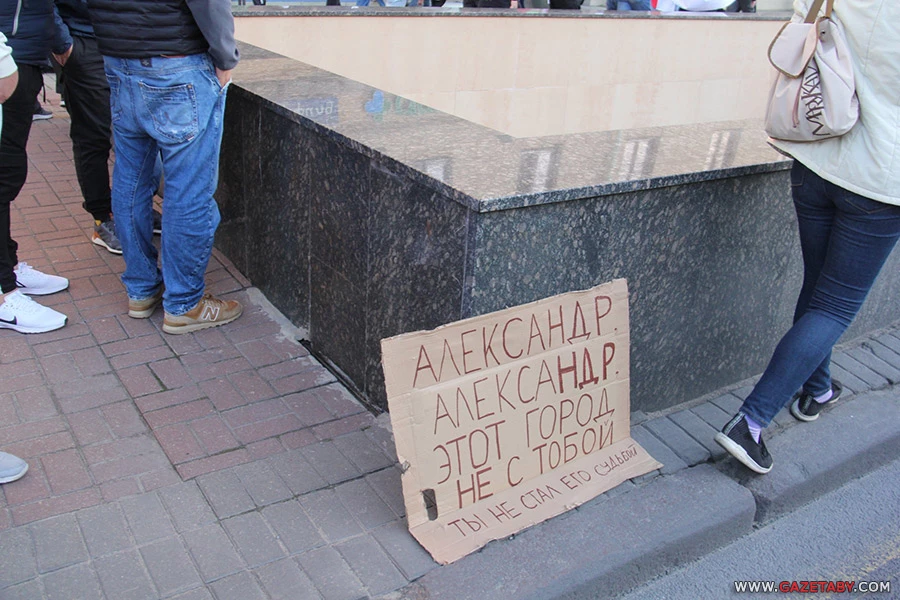 АЛЕКСАНДР.
АЛЕКСАНДР.
ЭТОТ ГОРОД
НЕ С ТОБОЙ
ТЫ НЕ СТАЛ ЕГО СУДЬБОЙ
N
WWW.GAZETABY.COM